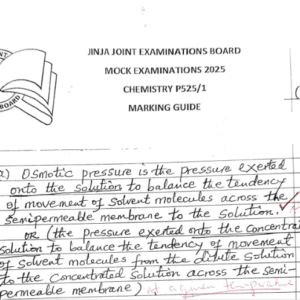 JINJA JOINT EXAMINATIONS BOARD
MOCK EXAMINATIONS 2025
CHEMISTRY P525/1
MARKING GUIDE
a) Osmotic pressure is the pressure exerted
onto the solution to balance the tendency
of movement of solvent molecules across the
semipermeable membrane to the solution.
OR (the pressure exerted onto the concentra
solution to balance the tendency of movement
of solvent molecules from the dilute solution
to the concentrated solution across the semi-
permeable membrane) at a given temperature